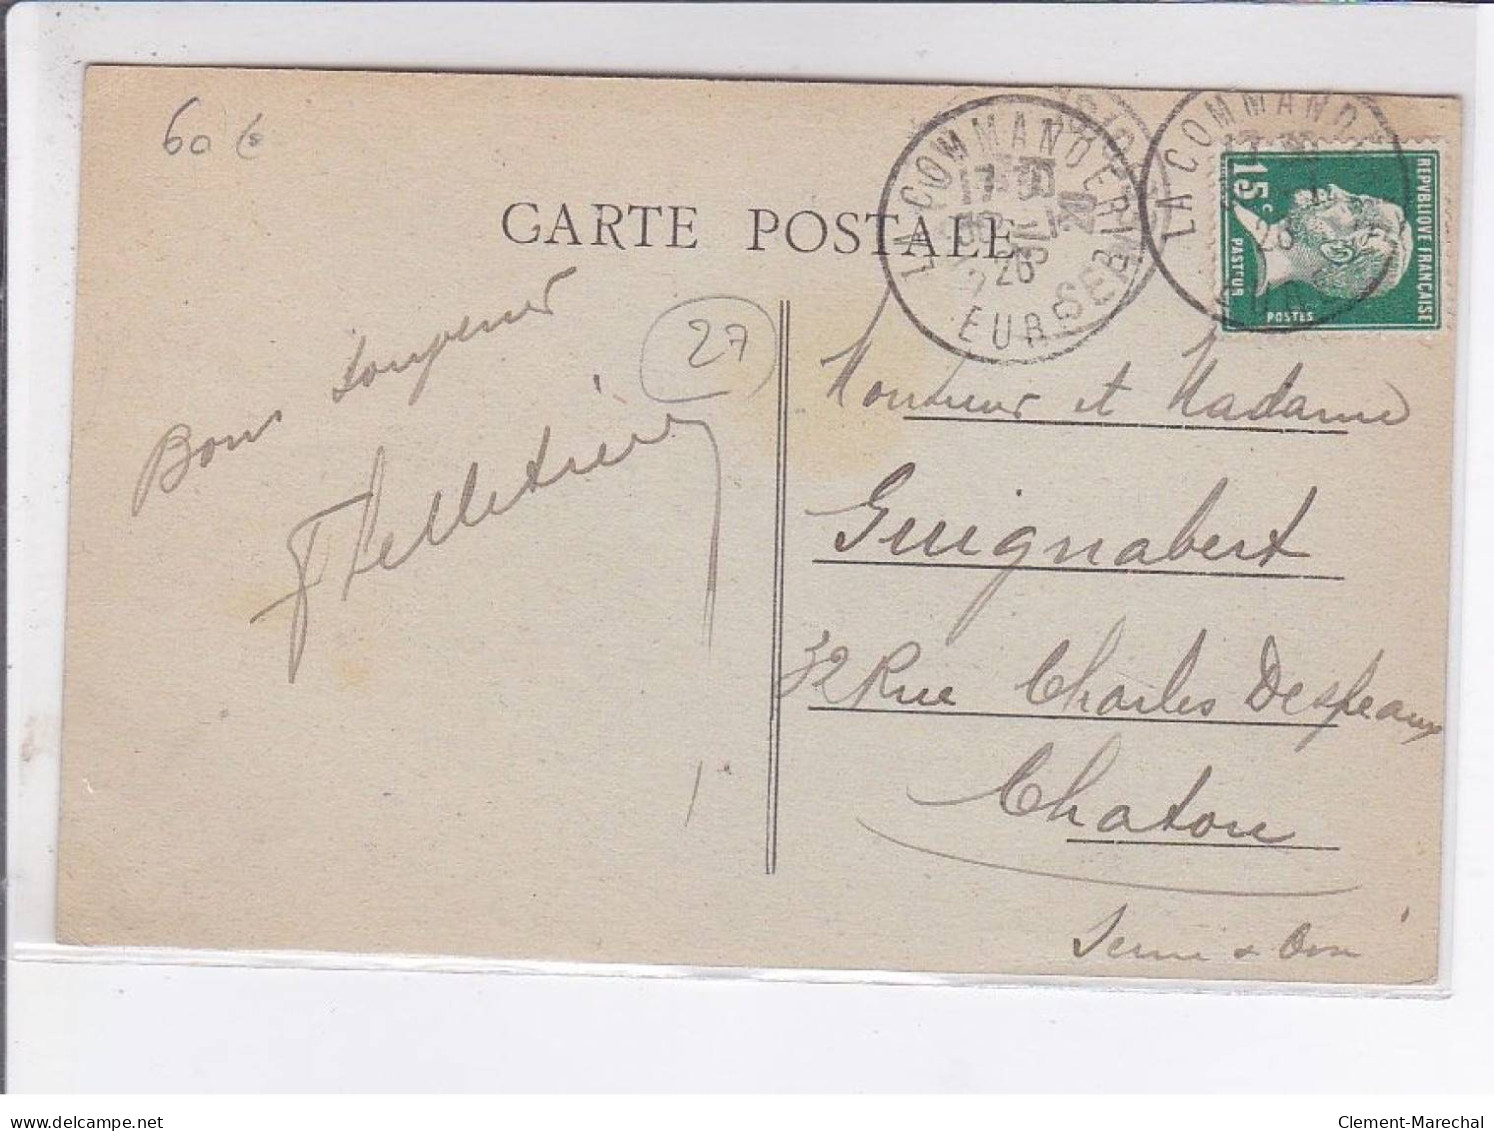 60 €
CARTE POSTALE
LA COMMANDERIE
17 30
26
EURE
LA COMMANDE
26
REPVBLIQVE FRANÇAISE
15c
PASTEUR
POSTES
27
Bons souvenirs
Pelletier
Monsieur et Madame
Guignabert
32 Rue Charles Despeaux
Chatou
Seine & Oise
delcampe.net
Clement-Marechal